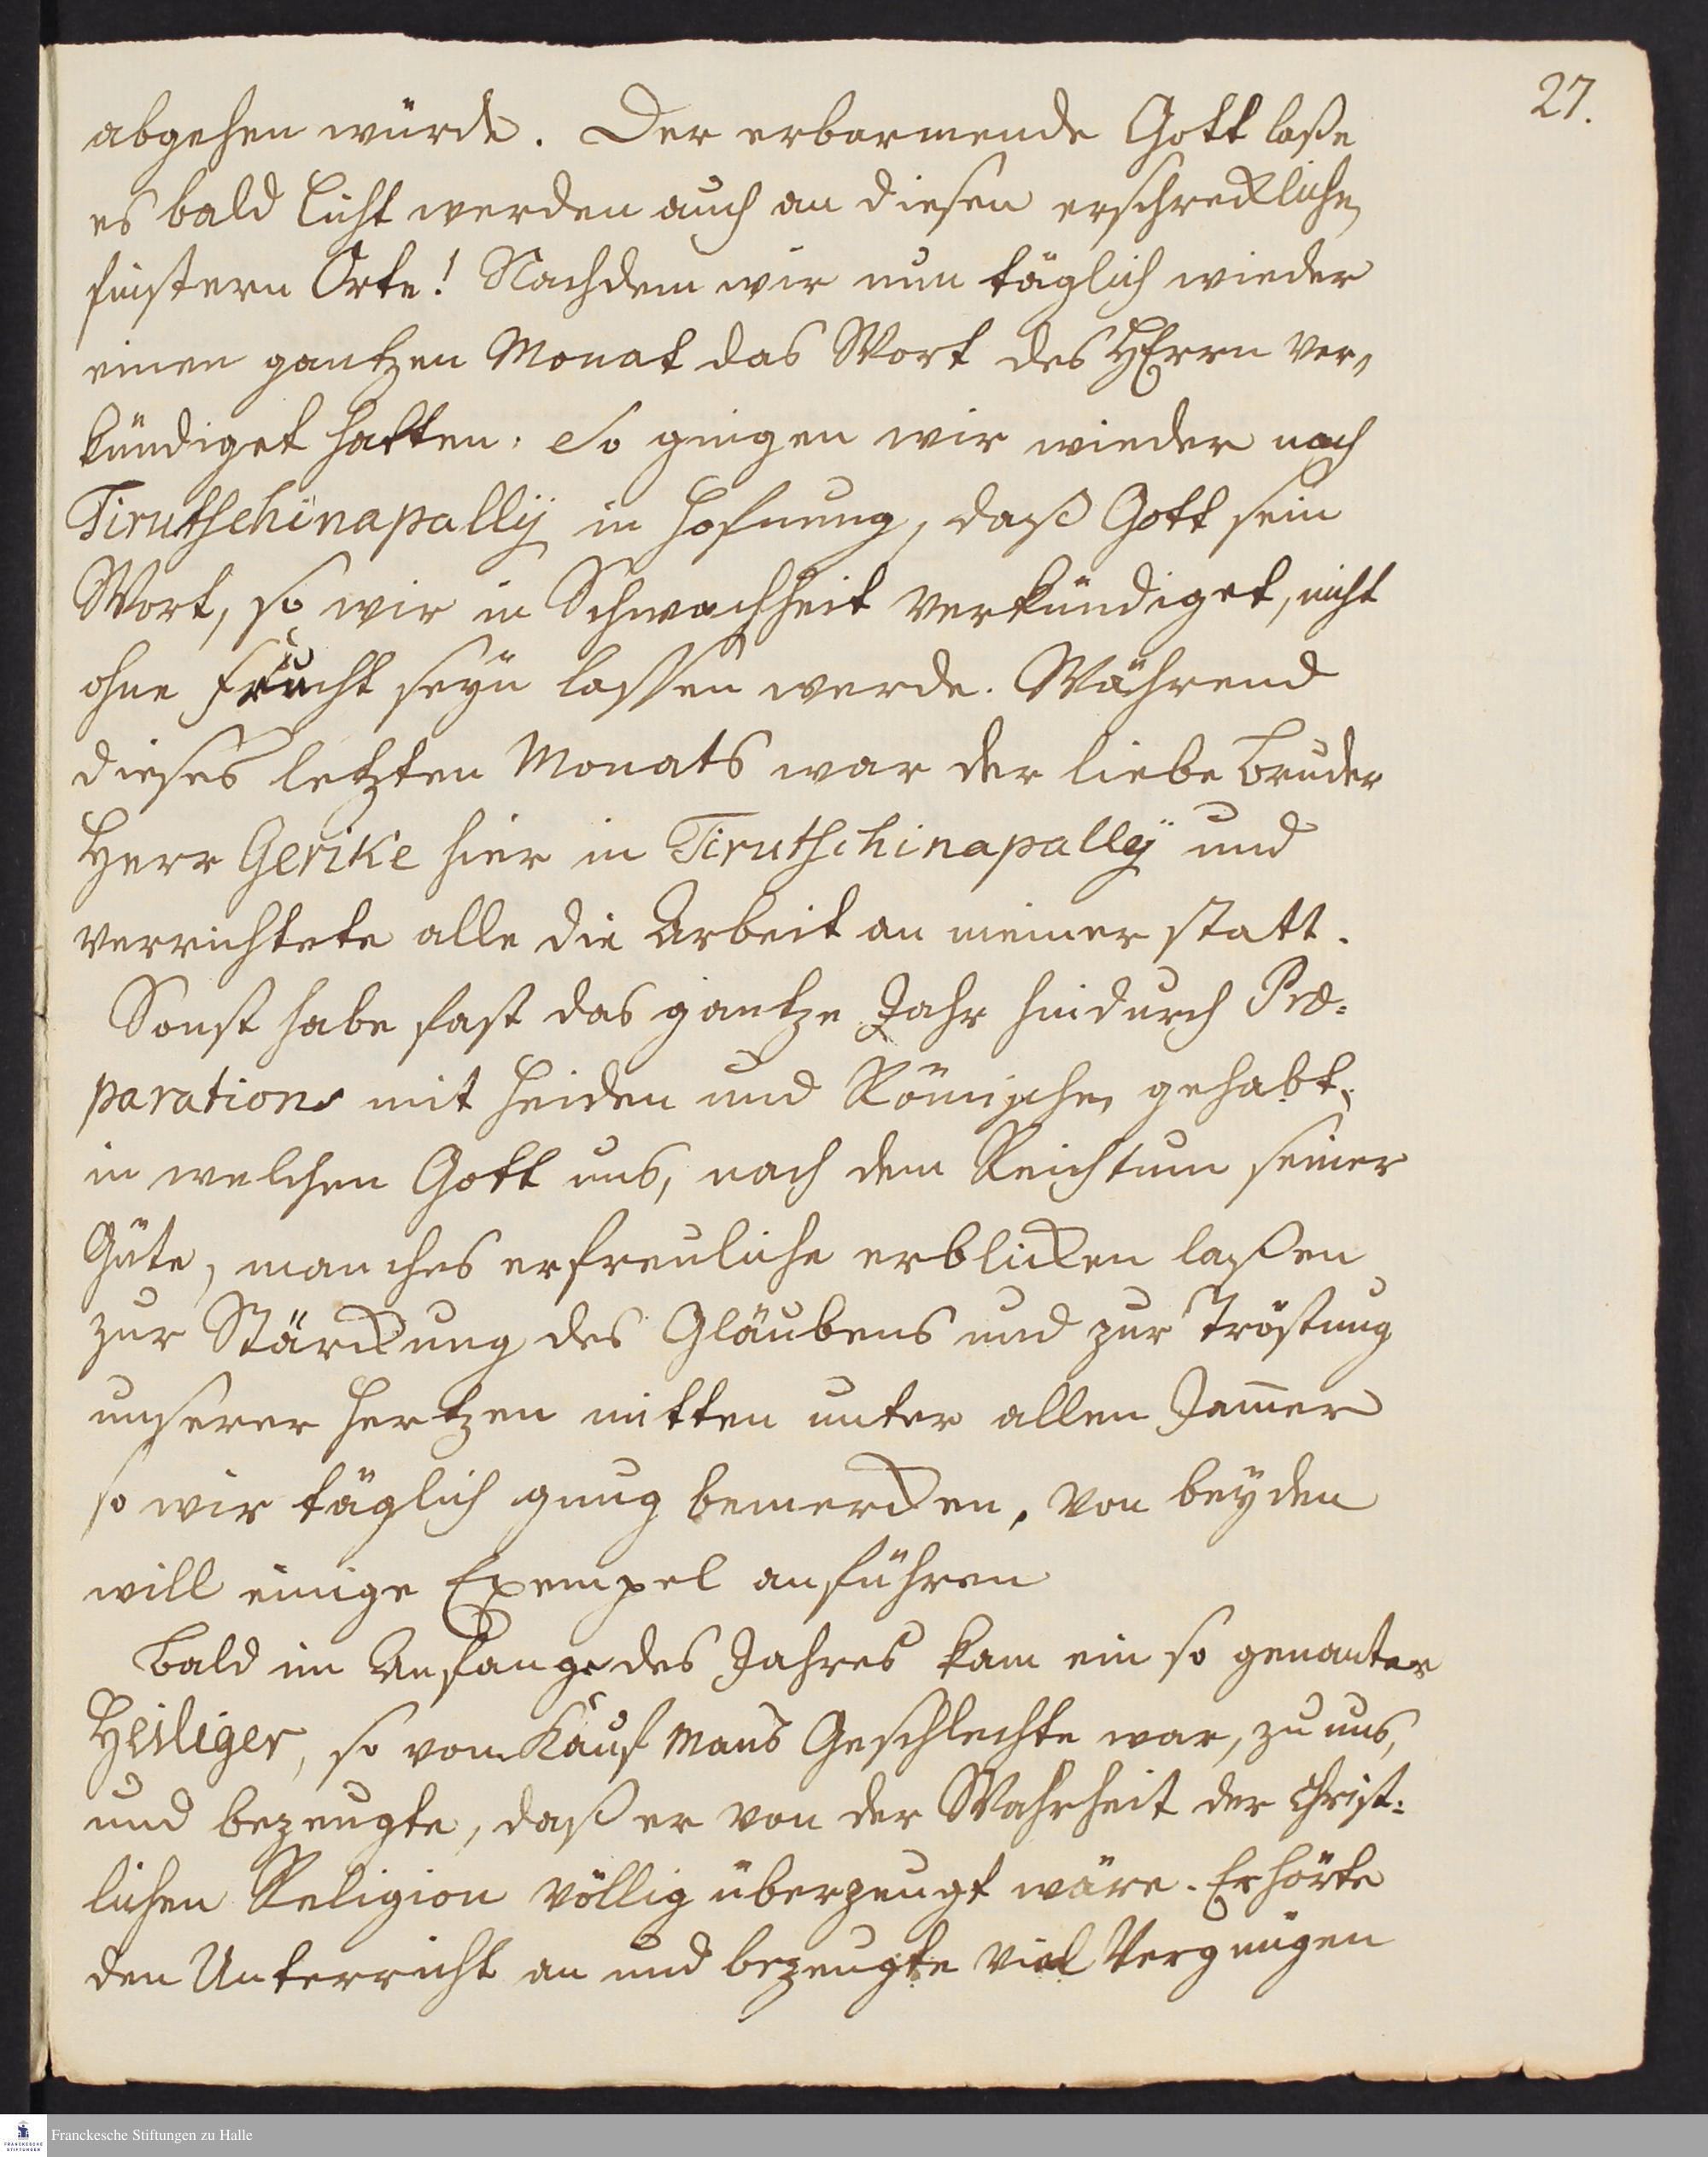 27.
abgehen würde. Der erbarmende Gott laße
es bald Licht werden auch an diesen erschrecklichen
finstern Orte! Nachdem wir nun täglich wieder
einen gantzen Monat das Wort des HErrn ver„
kündiget hatten, So gingen wir wieder nach
Tirutschinapallÿ in Hofnung, daß Gott sein
Wort, so wir in Schwachheit verkündiget, nicht
ohne Frucht seÿn lassen werde. Während
dieses letzten Monats war der liebe Bruder
Herr Gerike hier in Tirutschinapallÿ und
verrichtete alle die Arbeit an meiner statt.
Sonst habe fast das gantze Jahr hindurch Præ=
parations mit Heiden und Römischen gehabt,
in welchen Gott uns, nach dem Reichtum seiner
Güte, manches erfreuliche erblicken laßen
zur Stärckung des Glaubens und zur Tröstung
unserer Hertzen mitten unter allen Jam̅er
so wir täglich gnug bemercken, von beÿden
will einige Exempel anführen
Bald im Anfange des Jahres kam ein so genanter
Heiliger, so vom Kauf Mans Geschlechte war, zu uns,
und bezeugte, daß er von der Wahrheit der Christ=
lichen Religion völlig überzeugt wäre. Er hörte
den Unterricht an und bezeugte viel Vergnügen
Franckesche Stiftungen zu Halle
FRANCKESCHE
STIFTUNGEN